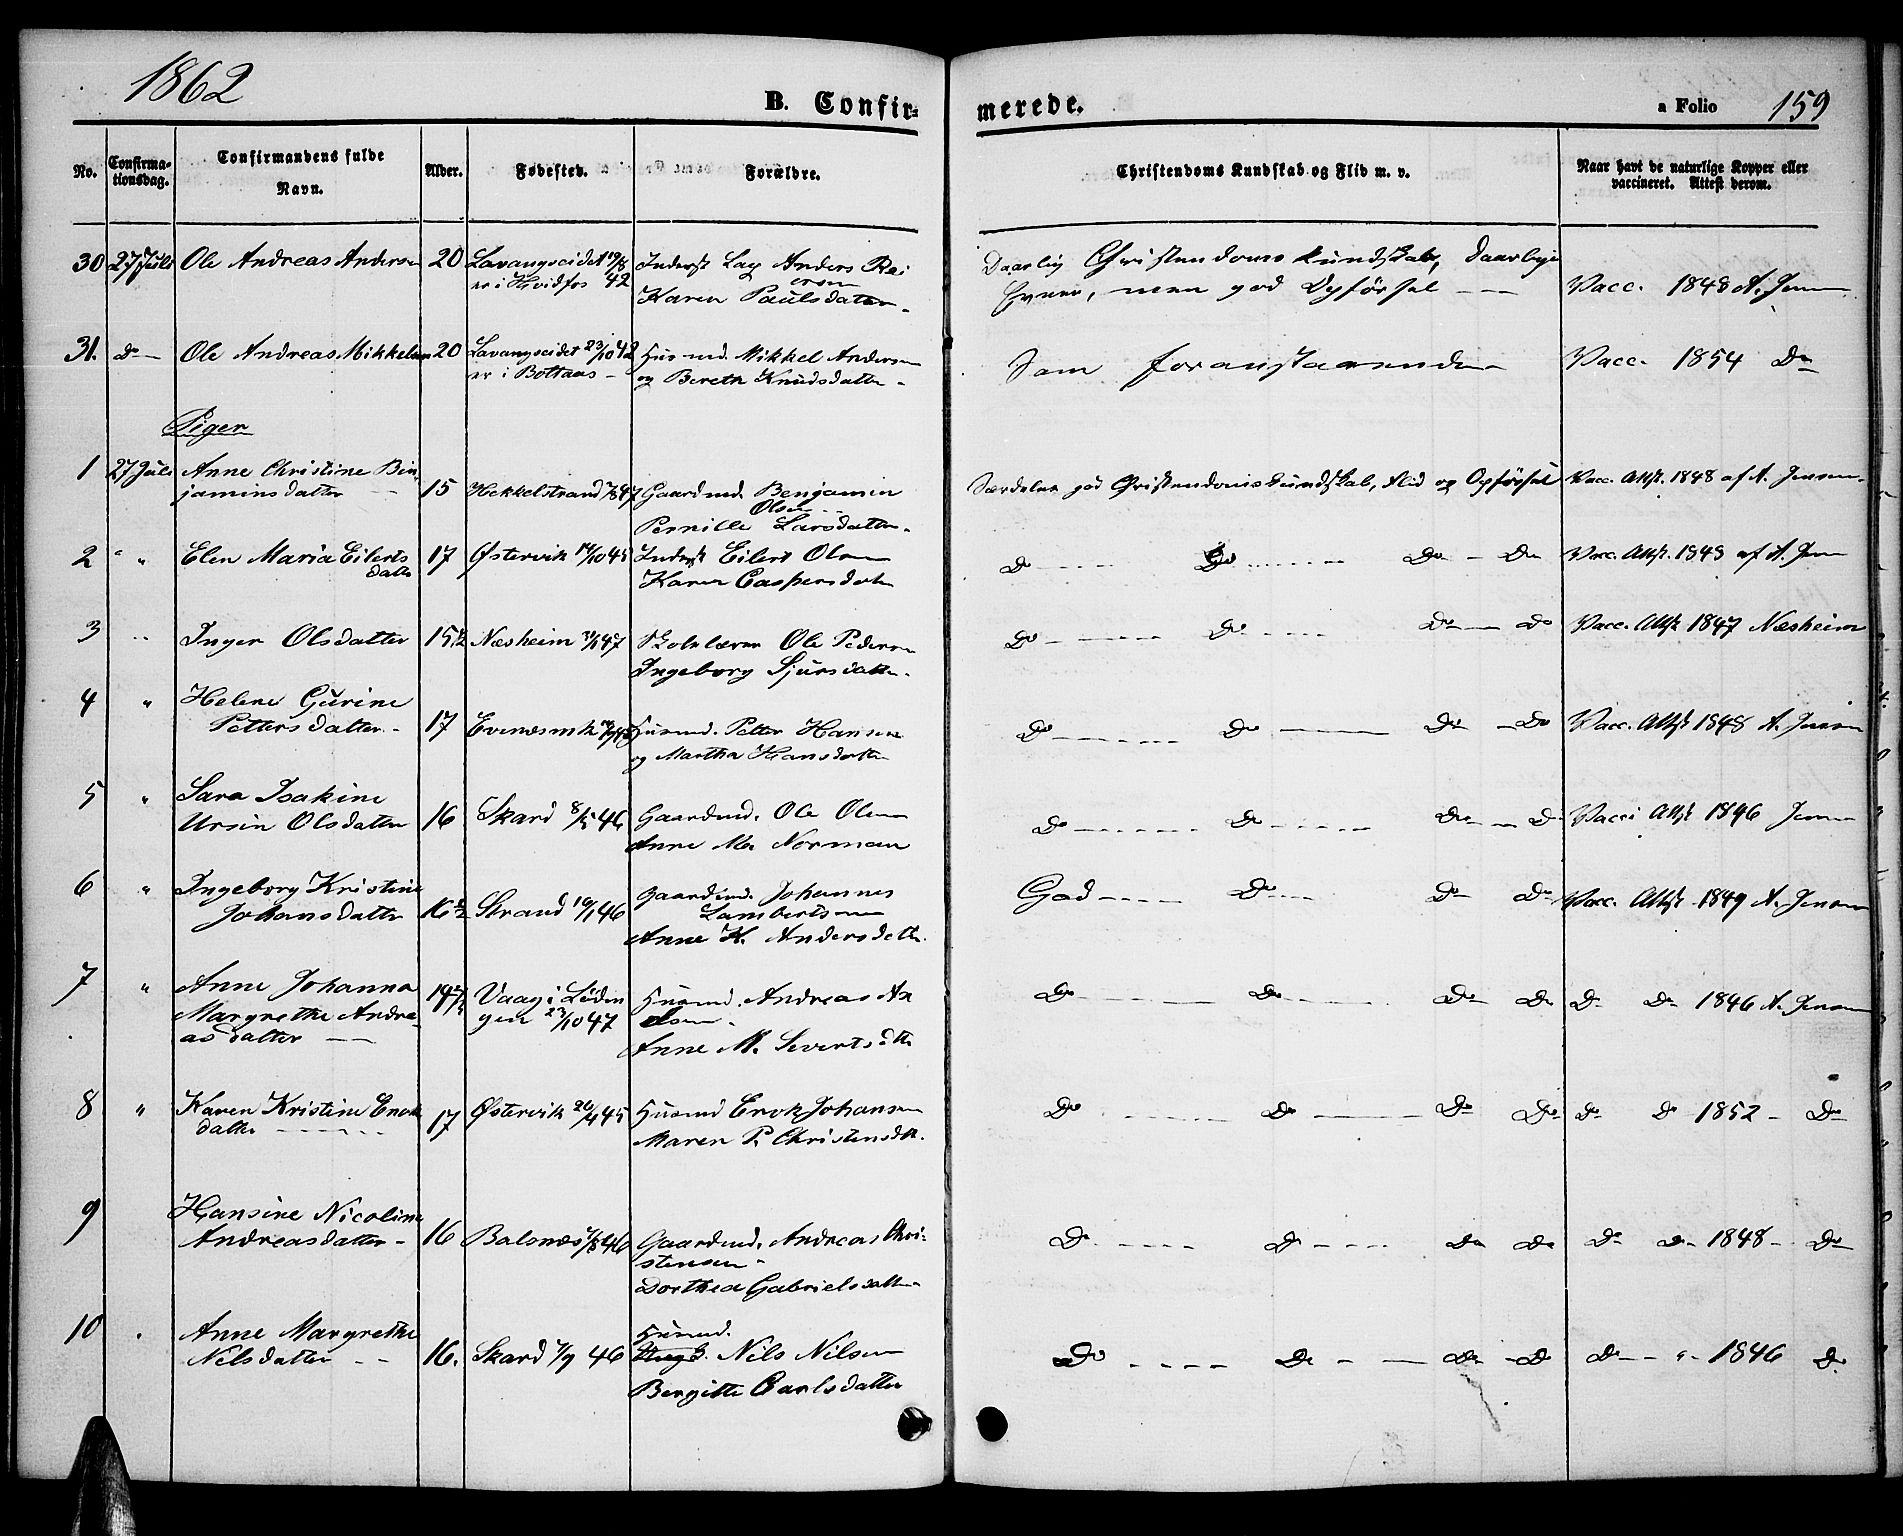 1862
B. Confir-
merede.
a Folio 159
No.
Confirma-
tionsdag.
Confirmandens fulde
Navn.
Alder.
Fødested.
Forældre.
Christendoms Kundskab og Flid m. v.
Naar havt de naturlige Kopper eller
vaccineret. Attest derom.
30 27 Juli Ole Andreas Andersen 20 Lavangseidet Inderst Lap Anders Rei Daarlig Christendomskundskab, daarlige
er i Hvidfos 42 ersen
Karen Paulsdatter. Evner, men god Opførsel Vacc. 1848 A. Jensen
31. Do Ole Andreas Mikkelsen 20 Lavangseidet 23/10 42 Husmd. Mikkel Andersen Som foranstaaende Vacc. 1854 Do
er i Botlaas og Bereth Knudsdatter
Piger
1 27 Juli Anne Christine Ben
jaminsdatter 15 Hekkelstrand 7/8 47 Gaardmd. Benjamin Særdeles god Christendomskundskab, Flid og Opførsel Vacc. Attst. 1848 af A. Jensen.
Olsen
Pernille Larsdatter.
2 " " Elen Maria Eilerts 17 Østervik 14/10 45 Inderst Eilert Olsen Do Do Do Do Vacc. Attst. 1848 af A. Jensen
datter Karen Caspersdatter
3 " Inger Olsdatter 15 1/2 Næsheim 47 Skolelærer Ole Pedersen Do Do Do Do Vacc. Attst 1847 Næsheim
Ingeborg Sjursdatter.
4 " Helene Gurine
Pettersdatter 17 Evenæsmk 45 Husmd. Petter Hansen Do Do Do Do Vacc. Attst 1848 A. Jensen
og Martha Hansdatter
5 " Sara Isakine
Ursin Olsdatter 16 Skard 8/5 46 Gaardmd. Ole Olsen Do Do Do Do Vacci Attst 1846 Jensen
Anne M. Norman
6 " Ingeborg Kristine Gaardmd. Johannes God Do Do Do Vacc. Attst 1849 A. Jensen
Johansdatter 16 1/2 Strand 19/1 46 Lambertsen
Anne K. Andersdatter.
7 " Anne Johanna Vaag i Lødin Husmd. Andreas Ax Do Do Do Do Do Do 1846 A. Jensen
Margrethe Andre- gen 23/10 47 elsen
asdatter Anne M. Sivertsdtt
8 " Karen Kristine Enok 17 Østervik 26/4 45 Husmd Enok Johansen Do Do Do Do Do Do 1852 Do
datter Maren P. Christensdtt.
9 Hansine Nicoline
Andreasdatter 16 Balsnæs 7/8 46 Gaardmd. Andreas Chri- Do Do Do Do Do Do 1848 Do
stensen
Dorthea Gabrielsdatter
10 Anne Margrethe Husmd.
Nelsdatter 16. Skard 7/9 46 Nils Nilsen Do Do Do Do Do " 1846 Do
Bergitte Carlsdatter